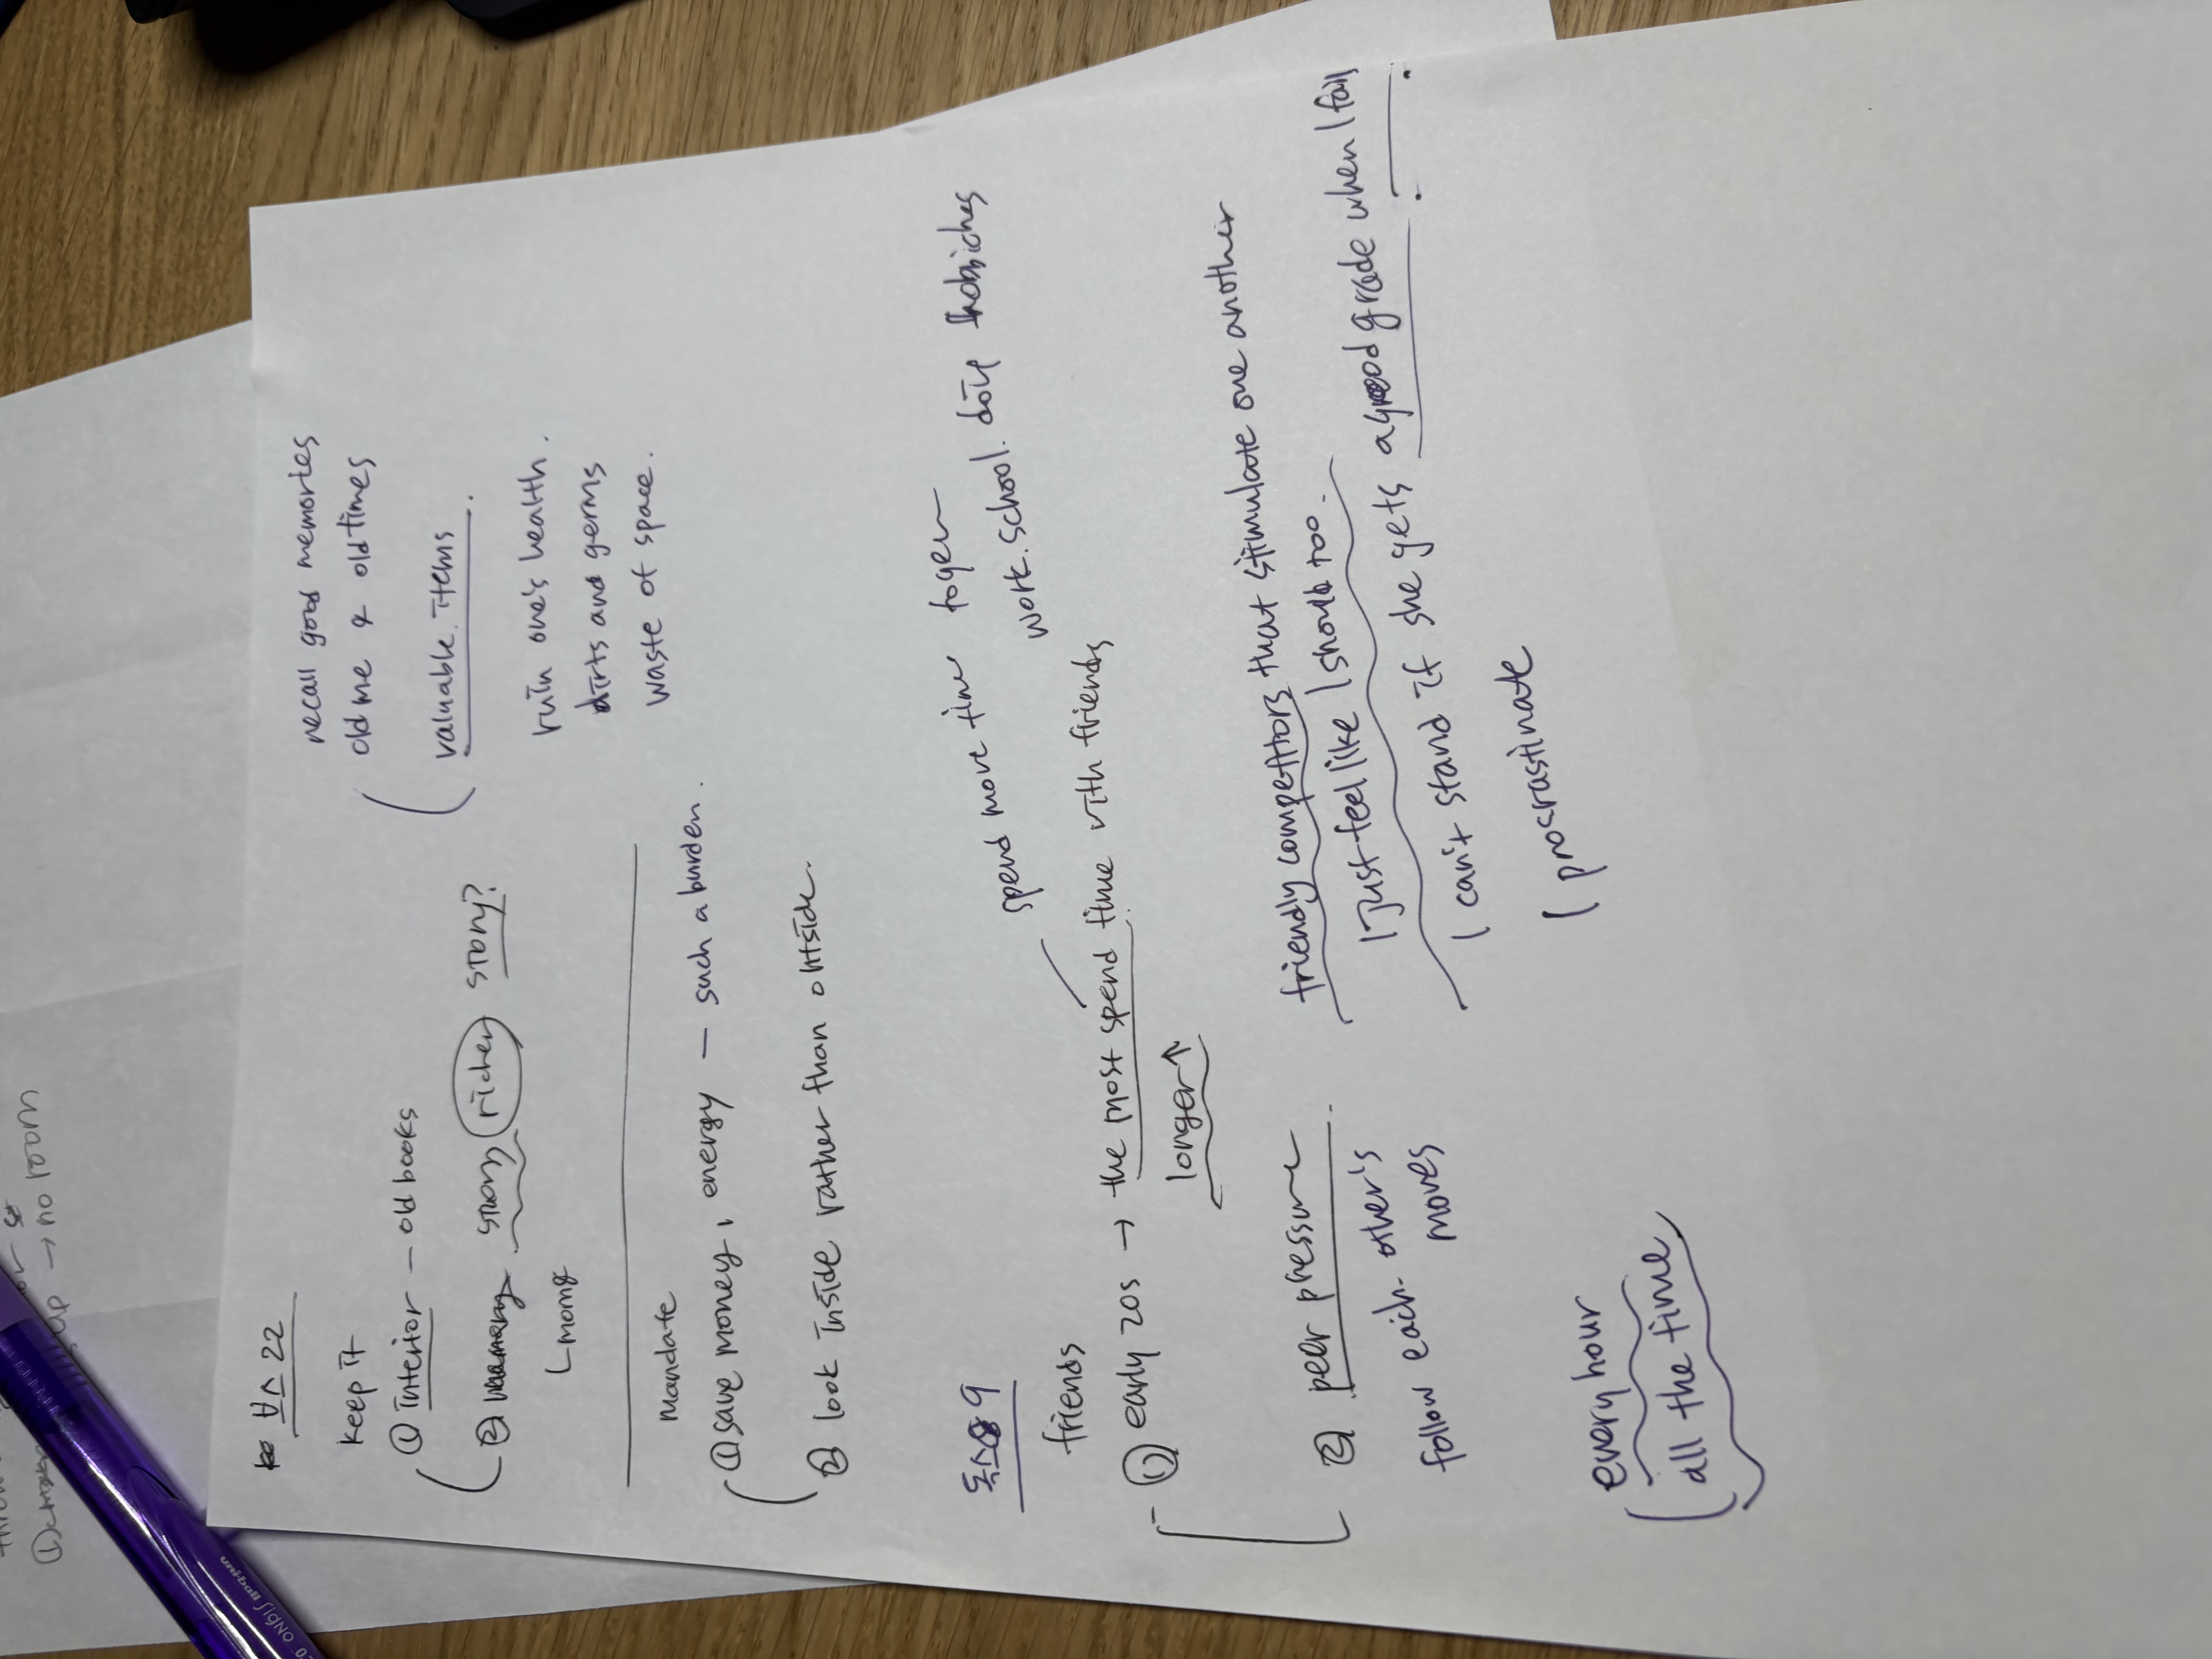 보스 22
keep it
① interior — old books
② story richer story?
recall good memories
old me & old times
valuable items.
ruin one's health.
dirts and germs
waste of space.
mandate
① save money, energy — such a burden.
② look inside rather than outside.
독스 9
friends
① early 20s → the most spend time with friends
longer ↑
spend more time
work. school.
② peer pressure
follow each other's
moves
friendly competitors that stimulate one another
I just feel like I should too.
I can't stand if she gets a good grade when I fail
I procrastinate
every hour
all the time
→ no room
uni-ball Signo